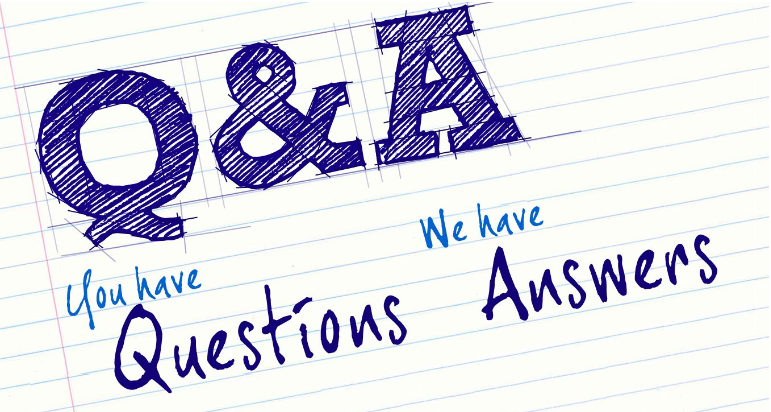 Q&A
You have
Questions
We have
Answers